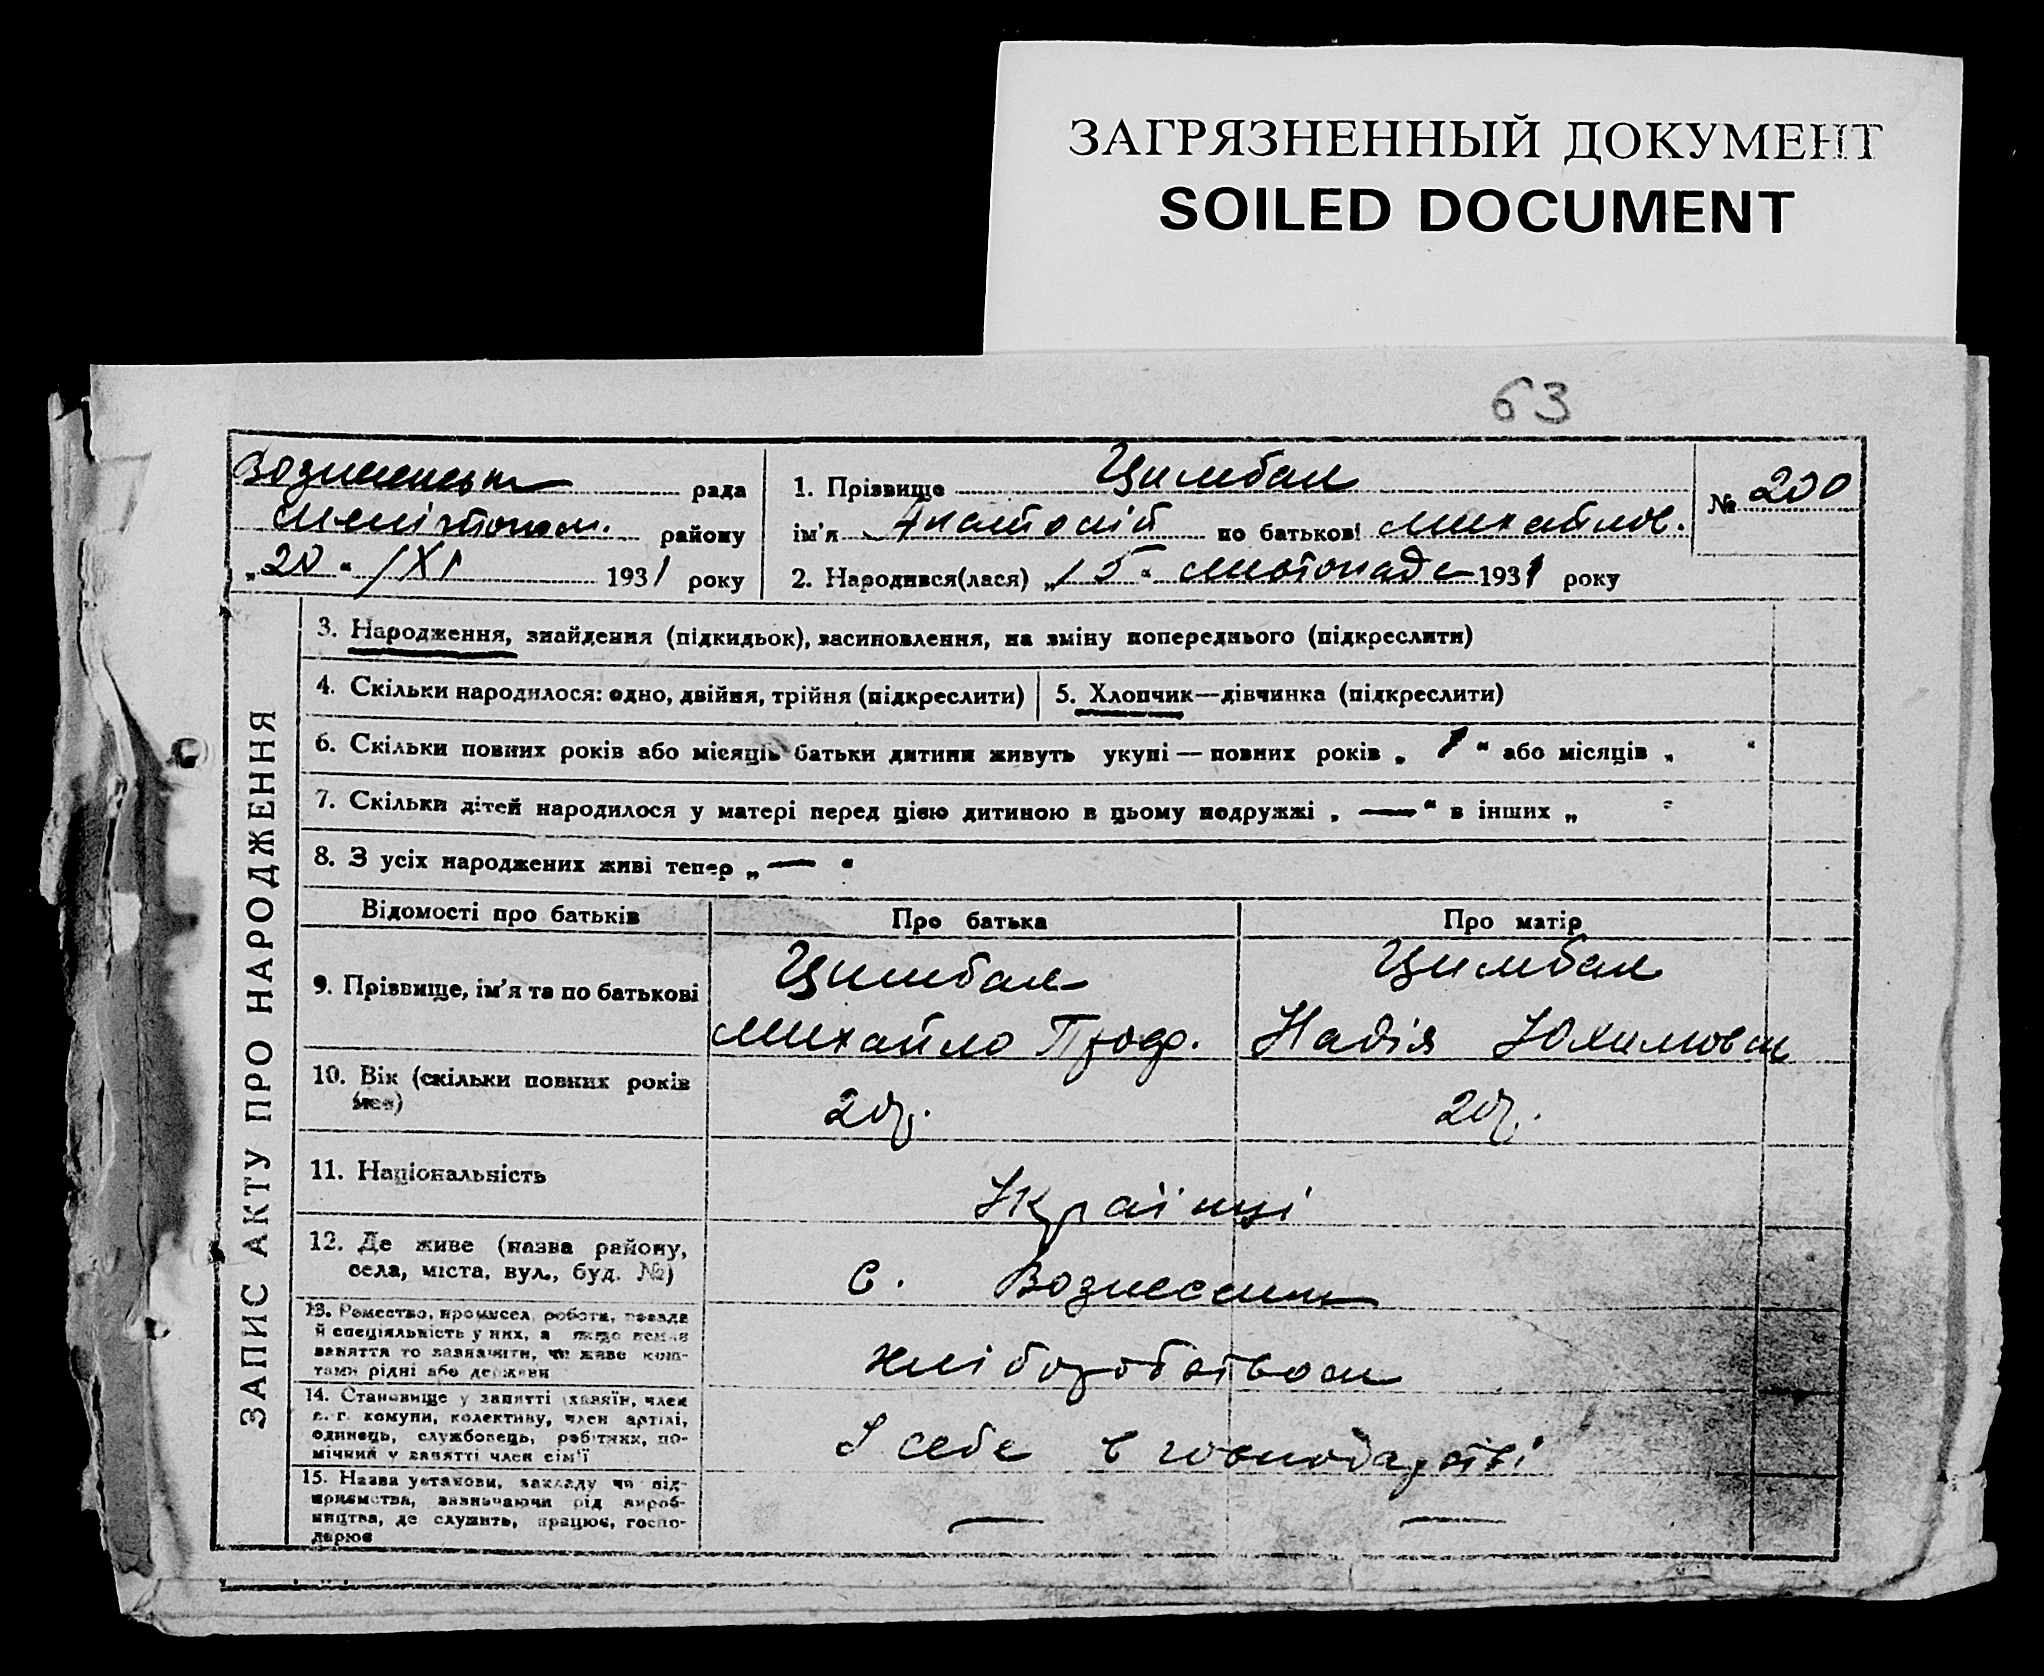 ЗАГРЯЗНЕННЫЙ ДОКУМЕНТ
SOILED DOCUMENT
63
Вознесенськ рада
Мелітопол. району
„20“ /XI 1931 року
1. Прізвище Цимбал
ім'я Анатолій по батькові Михайлов.
2. Народився(лася) „15“ листопада 1931 року
№ 200
ЗАПИС АКТУ ПРО НАРОДЖЕННЯ
3. Народження, знайдення (підкидьок), засиновлення, на зміну попереднього (підкреслити)
4. Скільки народилося: одно, двійня, трійня (підкреслити) 5. Хлопчик—дівчинка (підкреслити)
6. Скільки повних років або місяців батьки дитини живуть укупі — повних років „ 1 “ або місяців „ “
7. Скільки дітей народилося у матері перед цією дитиною в цьому подружжі „ — “ в інших „ “
8. З усіх народжених живі тепер „ — “
Відомості про батьків Про батька Про матір
9. Прізвище, ім'я та по батькові
Цимбал Цимбал
Михайло Проф. Надія Юхимовна
10. Вік (скільки повних років
має)
20р. 20р.
11. Національність
Українці
12. Де живе (назва району,
села, міста, вул., буд. №)
с. Вознесенк
13. Ремество, промисел, робота, посада
й спеціяльність у них, а якщо немає
заняття то зазначити, чи живе кош-
тами рідні або держави
хліборобством
14. Становище у занятті (хазяїн, член
с.-г. комуни, колективу, член артілі,
одинець, службовець, робітник, по-
мічний у занятті член сім'ї
У себе в господарстві
15. Назва установи, закладу чи під-
приємства, зазначаючи рід вироб-
ництва, де служить, працює, госпо-
дарює
— —